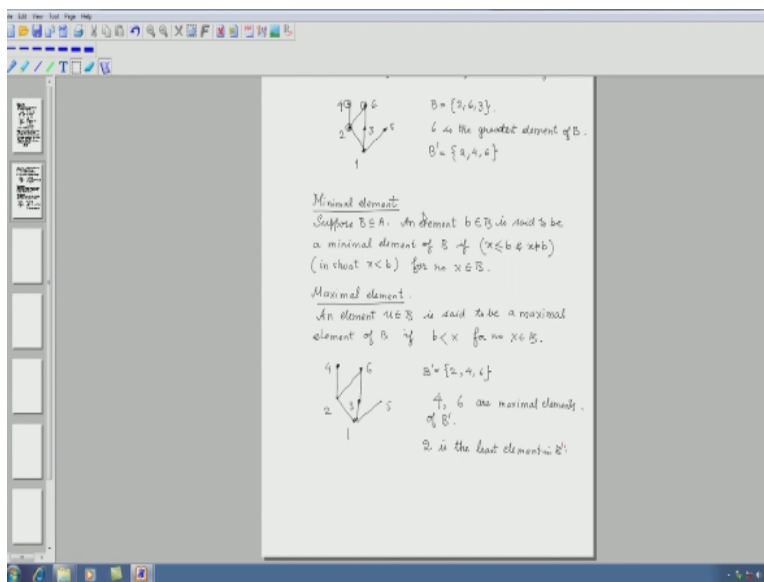 File Edit View Tool Page Help
4 6 B = {2, 6, 3}.
2 3 5 6 is the greatest element of B.
1 B' = {2, 4, 6}
Minimal element
Suppose B ⊆ A. An element b ∈ B is said to be
a minimal element of B if (x ≤ b & x ≠ b)
(in short x < b) for no x ∈ B.
Maximal element.
An element u ∈ B is said to be a maximal
element of B if b < x for no x ∈ B.
4 6 B' = {2, 4, 6}
2 3 5 4, 6 are maximal elements
of B'.
1
2 is the least element in B'.